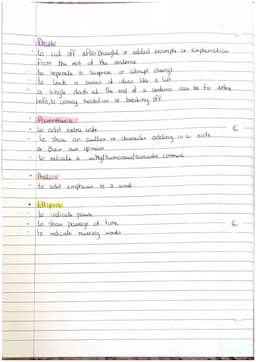 Dash
- to cut off afterthought or added example or explanation
from the rest of the sentence
- to seperate a surprise or abrupt change
- to link a series of ideas like a list
- a single dash at the end of a sentence can be for extra
info, to convey hesitation or breaking off.
Parenthesis
- to add extra info
- to show an author or character adding in a side
or their own opinion
- to indicate a witty/humorous/sarcastic comment
Italics
- to add emphasis to a word
Ellipsis
- to indicate pause
- to show passage of time
- to indicate missing words